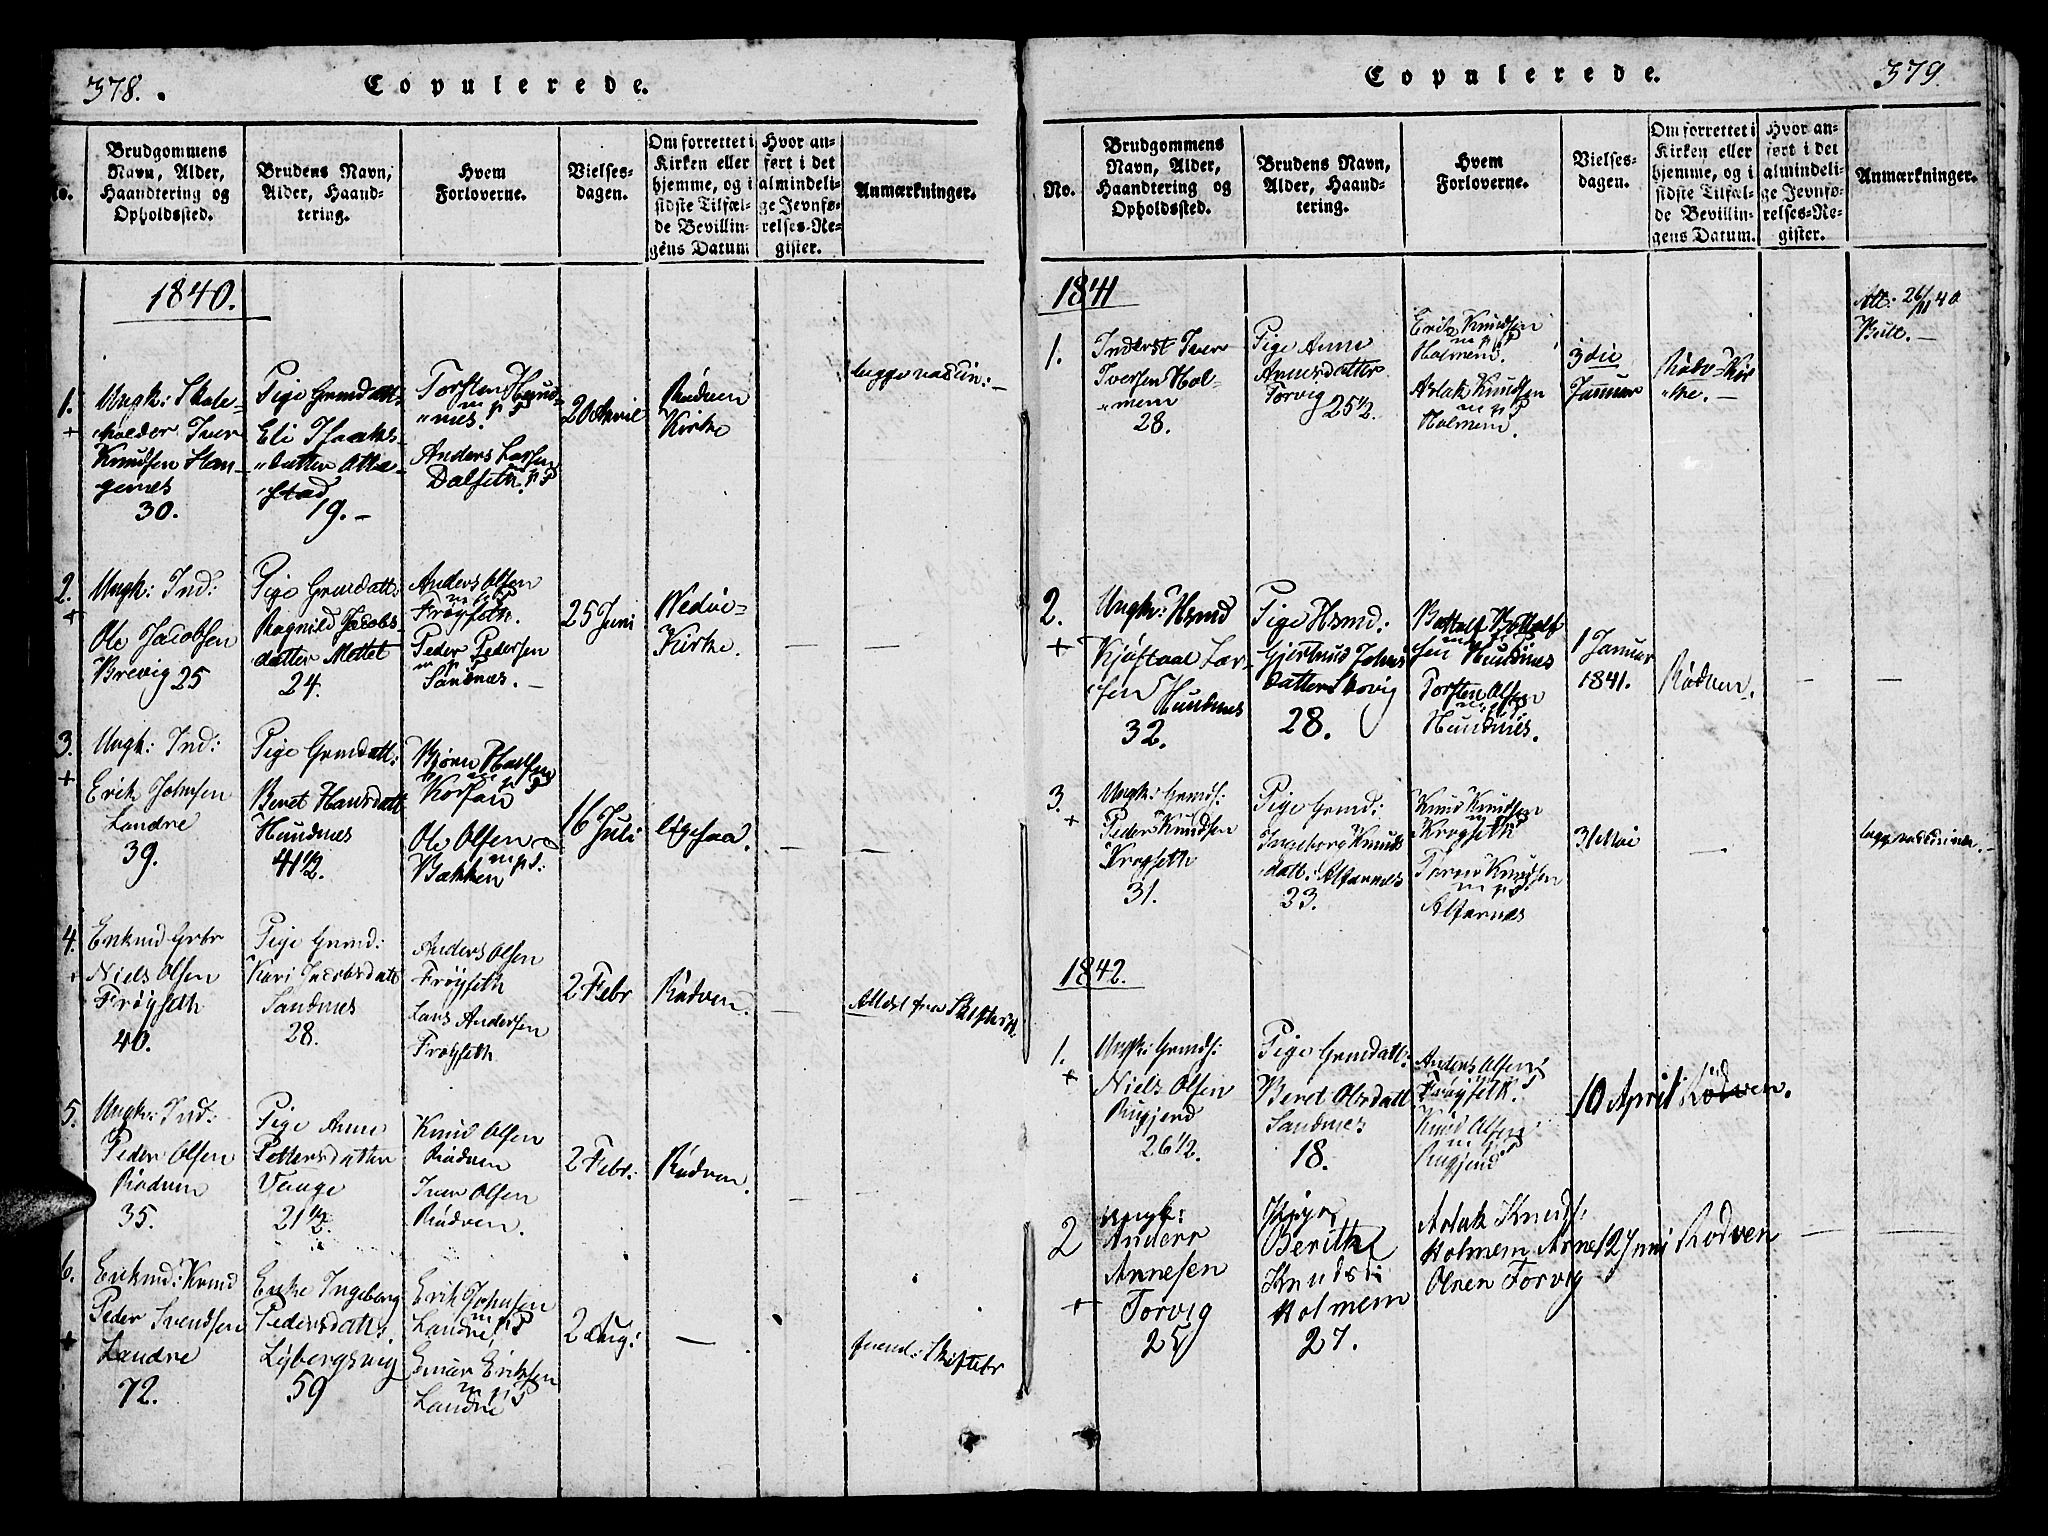 378.
Copulerede.
No.
Brudgommens
Navn, Alder,
Haandtering og
Opholdssted.
Brudens Navn,
Alder, Haand-
tering.
Hvem
Forloverne.
Vielses-
dagen.
Om forrettet i
Kirken eller
hjemme, og i
sidste Tilfæl-
de Bevillin-
gens Datum
Hvor an-
ført i det
almindeli-
ge Jevnfø-
relses-Re-
gister.
Anmærkninger.
1840.
1.
+
Ungk: Skole-
holder Iver
Knudsen Han-
gernes
30.
Pige Grmdatt:
Eli Isaks-
datter
19.-
Torsten Hund-
nes. m p S
Anders Larsen
Dalseth. m p S
20 April
Rødven
Kirke
2.
+
Ungk: Ind:
Ole Jacobsen
Brevig 25
Pige Grmdatt:
Ragnild Jacobs-
datter Mettet
24.
Anders Olsen
m p S
Frøyseth.
Peder Pedersen
m p S
Sandnes.-
25 Juni
Wedøe-
Kirke.
3.
+
Ungk: Ind:
Erik Johnsen
Landre
39.
Pige Grmdatt:
Beret Hansdatt
Hundnes
41½.
Bjørn
m p S
Korsan
Ole Olsen
Bakken m p S:
16 Juli
ligesaa.
4.
+
Enkmd Grbr
Niels Olsen
Frøyseth
40.
Pige Grmd:
Kari Jacobsdatt
Sandnes
28.
Anders Olsen
Frøyseth
Lars Andersen
Frøyseth
2 Febr
Rødven.
Attest fra Skifter.
5.
Ungk: Ind:
Peder Olsen
Rødven
35.
Pige Anne
Pettersdatter
Venge
21½.
Knud Olsen
Rødven
Iver Olsen
Rødven.
2 Febr:
Rødven.
6.
+
Enkmd:
Peder Svendsen
Landre
72.
Enke Ingeborg
Pedersdatt.
Lybergsvig
59
Erik Johnsen
m p S
Landre
Einar Eriksen
m p S
Landre
2 Aug:
—
Skiftebr
379.
Copulerede.
No.
Brudgommens
Navn, Alder,
Haandtering og
Opholdssted.
Brudens Navn,
Alder, Haand-
tering.
Hvem
Forloverne.
Vielses-
dagen.
Om forrettet i
Kirken eller
hjemme, og i
sidste Tilfæl-
de Bevillin-
gens Datum.
Hvor an-
ført i det
almindeli-
ge Jevnfø-
relses-Re-
gister.
Anmærkninger.
1841
1.
Inderst Iver
Iversen Hol-
mem
28.
Pige Anne
Arnesdatter
Torvig
25½.
Erik Knudsen
m p S
Holmem.
Aslak Knudsen
m p S
Holmem.
3die
Januar
Rødv: Kir
ke.-
Att: 26/11 40
2.
+
Ungk: Hsmd
Kjøstaal Lar-
sen Hundnes
32.
Pige Hsmd:
Gjertrud Johns
datter
28.
Bottolf Bottolf
sen Hundnes
Torsten Olsen
m p S
Hundnes.
1 Januar
1841.
Rødven.
3.
+
Ungk: Grmds:
Peder Knudsen
Krogseth
31.
Pige Grmd:
Ingeborg Knuds
datt: Alfarnes
33.
Knud Knudsen
m p S
Krogseth
Knudsen
m p S
Alfarnes
31 Mai
—
1842.
1.
+
Ungk: Grmds:
Niels Olsen
Rugjend
26½.
Pige Grmdatt:
Beret Olsdatt
Sandnes
18.
Anders Olsen
Frøyseth. m p S
Knud Olsen
m p S
Rugjend
10 April
Rødven.
2
+
Ungk:
Anders
Arnesen
Torvig
25
Pige
Berith
Knudsd:
Holmem
27.
Aslak Knuds:
Holmem Arne
Olsen Torvig
12 Juni
Rødven